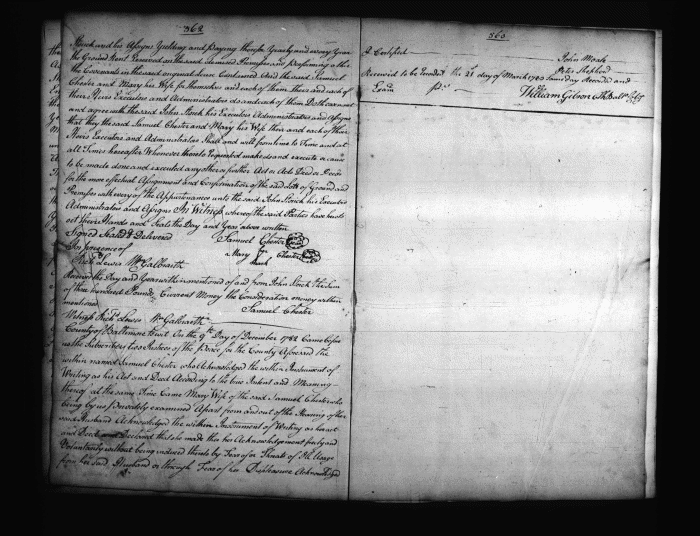 362
Stork and his Assigns Yielding and paying therefor Yearly and every Year
the Ground Rent Reserved on the said demised Premises and performing other
the Covenants in the said original Lease Contained And the said Samuel
Chester and Mary his Wife for themselves and each of them Their and each of
their Heirs Executors and Administrators do and each of them Doth covenant
and agree with the said John Stork his Executors Administrators and Assigns
that they the said Samuel Chester and Mary his Wife their and each of their
Heirs Executors and Administrators Shall and will from time to Time and at
all Times hereafter Whenever thereto Requested make do and execute or cause
to be made done and executed any other or further Act or Acts Deed or Deeds
for the more effectual Assignment and Confirmation of the said Lott of Ground and
Premises with every of the Appurtenances unto the said John Stork his Executors
Administrators and Assigns In Witness whereof the said Parties have hereunto
set their Hands and Seals the Day and Year above written
Signed Sealed & Delivered Samuel Chester
In presence of Mary Chester
Richd Lewis Wm Galbraith mark
Received the Day and Year within mentioned of and from John Stork the Sum
of three hundred Pounds Current Money the Consideration money within
mentioned Samuel Chester
Witness Richd Lewis Wm Galbraith
County of Baltimore to wit On the 9th Day of December 1782 Came before
us the Subscribers two Justices of the Peace for the County Aforesaid the
within named Samuel Chester who Acknowledged the within Instrument of
Writing as his Act and Deed According to the true Intent and Meaning
thereof at the same Time Came Mary Wife of the said Samuel Chester who
being by us privately examined Apart from and out of the Hearing of her
said Husband Acknowledged the within Instrument of Writing as her act
and Deed and Declared that she made this her Acknowledgment freely and
Voluntarily without being induced thereto by Fear or Threats of Ill Usage
from her said Husband or through Fear of his Displeasure Acknowledged
363
& Certified John Moale
Peter Shepherd
Received to be Recorded the 21 day of March 1783 Same day Recorded and
Exam pr William Gibson Clk Balt Coty